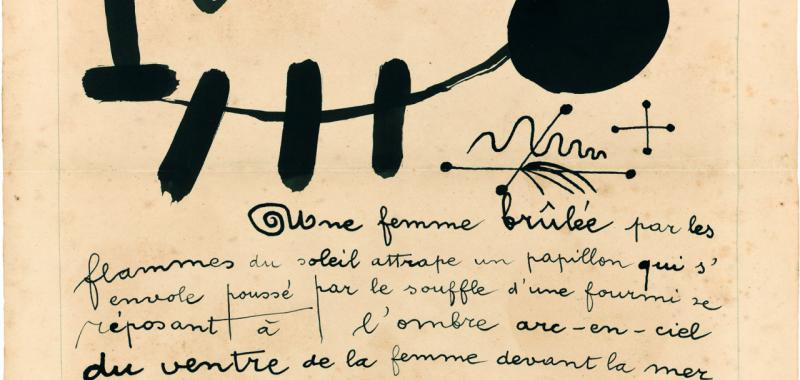 Une femme brûlée par les
flammes du soleil attrape un papillon qui s'
envole poussé par le souffle d'une fourmi se
réposant à l'ombre arc-en-ciel
du ventre de la femme devant la mer